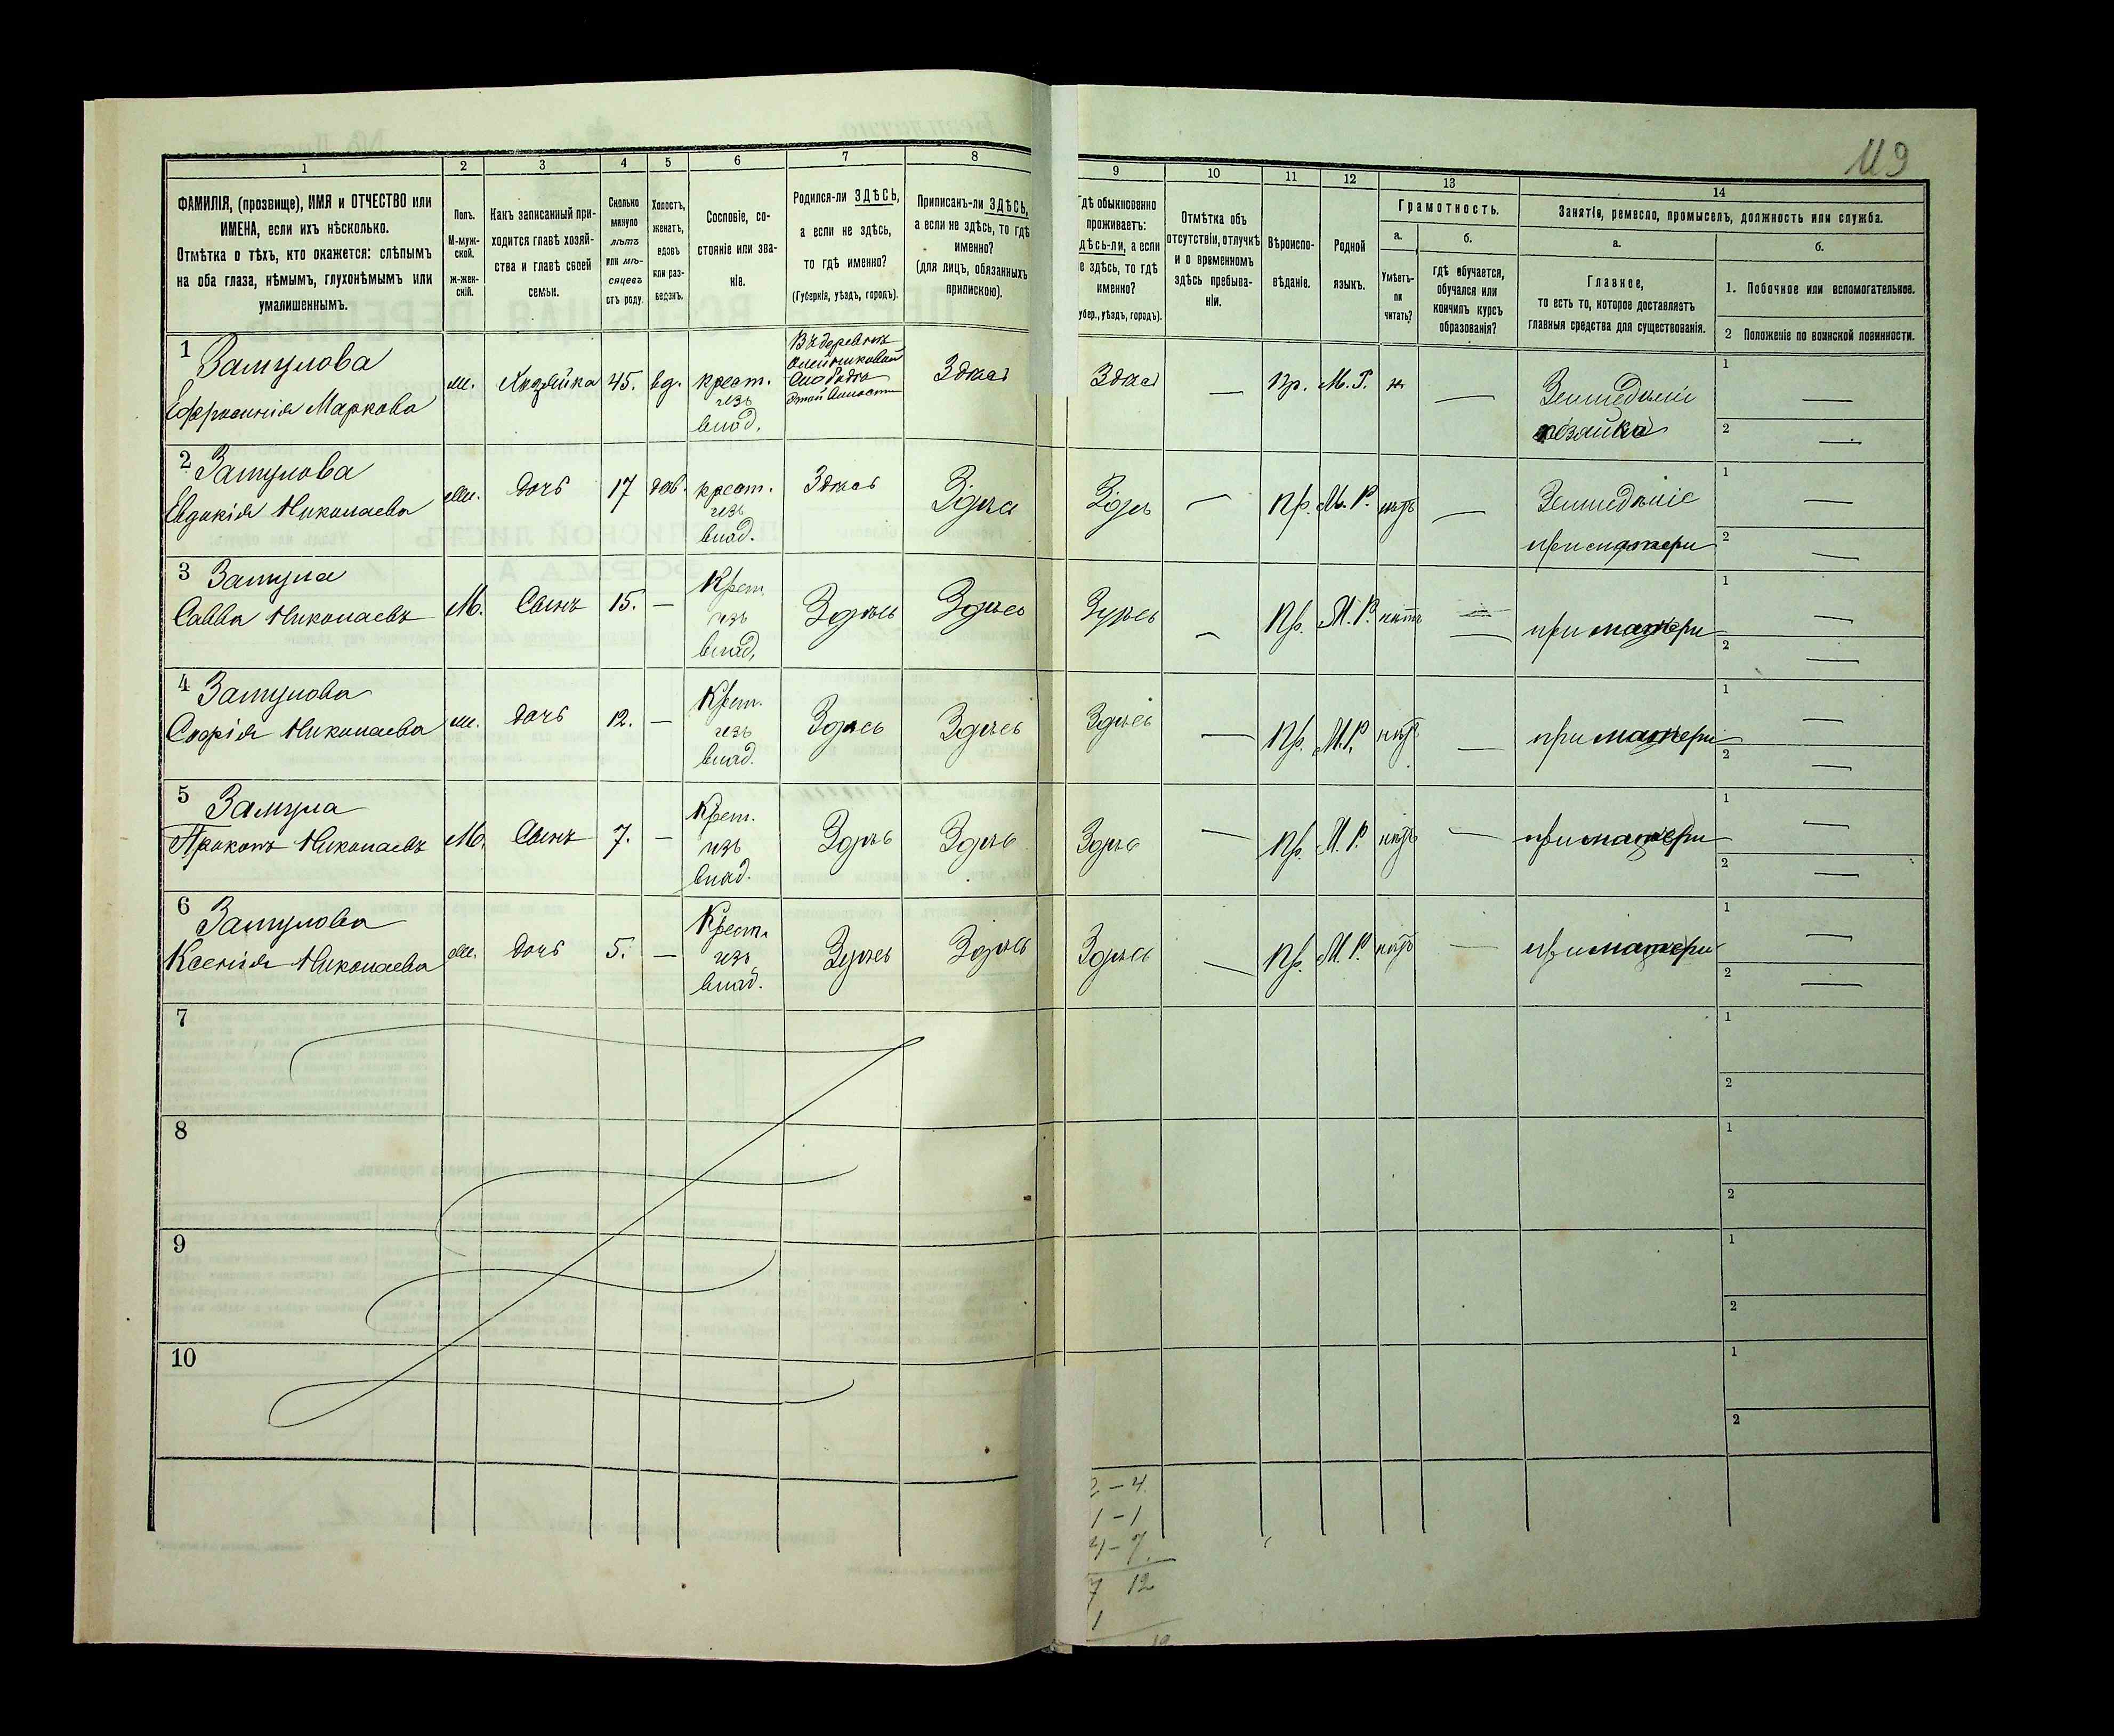 119
1
2
3
4
5
6
7
8
9
10
11
12
13
14
ФАМИЛІЯ, (прозвище), ИМЯ и ОТЧЕСТВО или
ИМЕНА, если ихъ нѣсколько.
Отмѣтка о тѣхъ, кто окажется: слѣпымъ
на оба глаза, нѣмымъ, глухонѣмымъ или
умалишеннымъ.
Полъ.
М-муж-
ской.
ж-жен-
скій.
Какъ записанный при-
ходится главѣ хозяй-
ства и главѣ своей
семьи.
Сколько
минуло
лѣтъ
или мѣ-
сяцевъ
отъ роду.
Холостъ,
женатъ,
вдовъ
или раз-
веденъ.
Сословіе, со-
стояніе или зва-
ніе.
Родился-ли ЗДѢСЬ,
а если не здѣсь,
то гдѣ именно?
(Губернія, уѣздъ, городъ).
Приписанъ-ли ЗДѢСЬ,
а если не здѣсь, то гдѣ
именно?
(для лицъ, обязанныхъ
припискою).
Гдѣ обыкновенно
проживаетъ:
дѣсь-ли, а если
е здѣсь, то гдѣ
именно?
убер., уѣздъ, городъ).
Отмѣтка объ
отсутствіи, отлучкѣ
и о временномъ
здѣсь пребыва-
ніи.
Вѣроиспо-
вѣданіе.
Родной
языкъ.
Грамотность.
а.
Умѣетъ-
ли
читать?
б.
гдѣ обучается,
обучался или
кончилъ курсъ
образованія?
Занятіе, ремесло, промыселъ, должность или служба.
а.
Главное,
то есть то, которое доставляетъ
главныя средства для существованія.
б.
1. Побочное или вспомогательное.
2 Положеніе по воинской повинности.
1 Замулова
Ефросинія Маркова
ж. Хозяйка 45. вд. крест.
изъ
влад.
Въ деревнѣ
Олейниковой
Слободкѣ
этой волости
Здѣсь Здѣсь — Пр. М. Р. н — Земледѣліе
хозяйка
1 —
2 —
2 Замулова
Евдокія Николаева
ж. дочь 17 дѣв. крест.
изъ
влад.
Здѣсь Здѣсь Здѣсь — Пр. М. Р. нѣтъ — Земледѣліе
при матери
1 —
2 —
3 Замула
Савва Николаевъ
М. Сынъ 15. — Крест.
изъ
влад.
Здѣсь Здѣсь Здѣсь — Пр. М. Р. нѣтъ — при матери
1 —
2 —
4 Замулова
Софія Николаева
ж. дочь 12. — Крест.
изъ
влад.
Здѣсь Здѣсь Здѣсь — Пр. М. Р. нѣтъ — при матери
1 —
2 —
5 Замула
Прокопъ Николаевъ
М. Сынъ 7. — Крест.
изъ
влад.
Здѣсь Здѣсь Здѣсь — Пр. М. Р. нѣтъ — при матери
1 —
2 —
6 Замулова
Ксенія Николаева
ж. дочь 5. — Крест.
изъ
влад.
Здѣсь Здѣсь Здѣсь — Пр. М. Р. нѣтъ — при матери
1 —
2 —
7
1
2
8
1
2
9
1
2
10
1
2
2 - 4
1 - 1
4 - 7
7 12
1